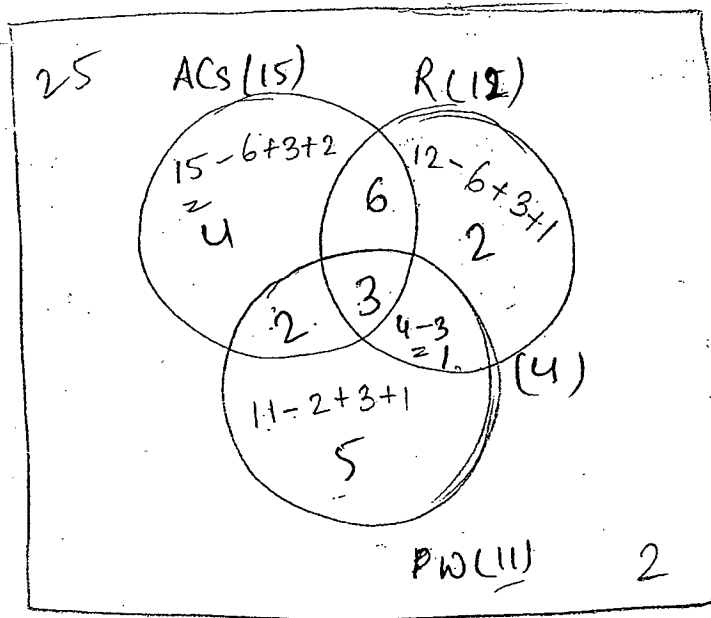 25 ACs (15) R (12)
15 - 6+3+2
=
4
6
12 - 6+3+1
2
2
3
4-3
= 1.
(4)
11 - 2+3+1
5
PW (11) 2